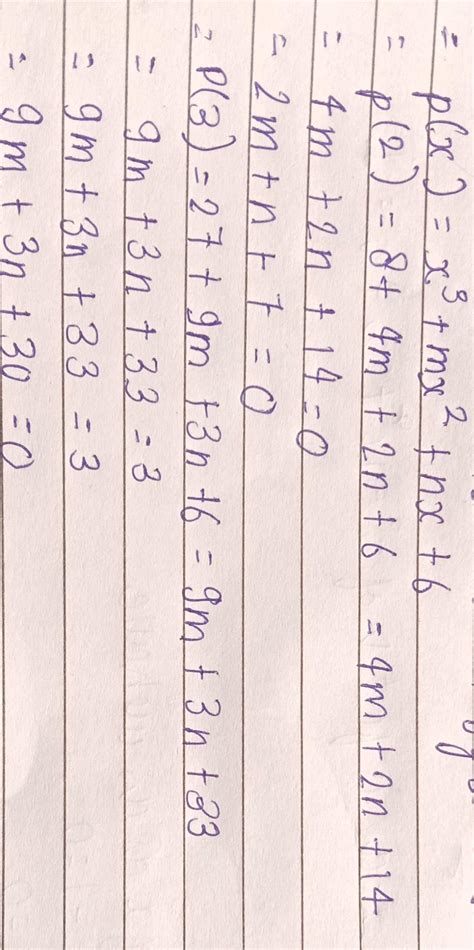 = p(x) = x³ + mx² + nx + 6
= p(2) = 8 + 4m + 2n + 6 = 4m + 2n + 14
= 4m + 2n + 14 = 0
= 2m + n + 7 = 0
= P(3) = 27 + 9m + 3n + 6 = 9m + 3n + 33
= 9m + 3n + 33 = 3
= 9m + 3n + 33 = 3
= 9m + 3n + 30 = 0